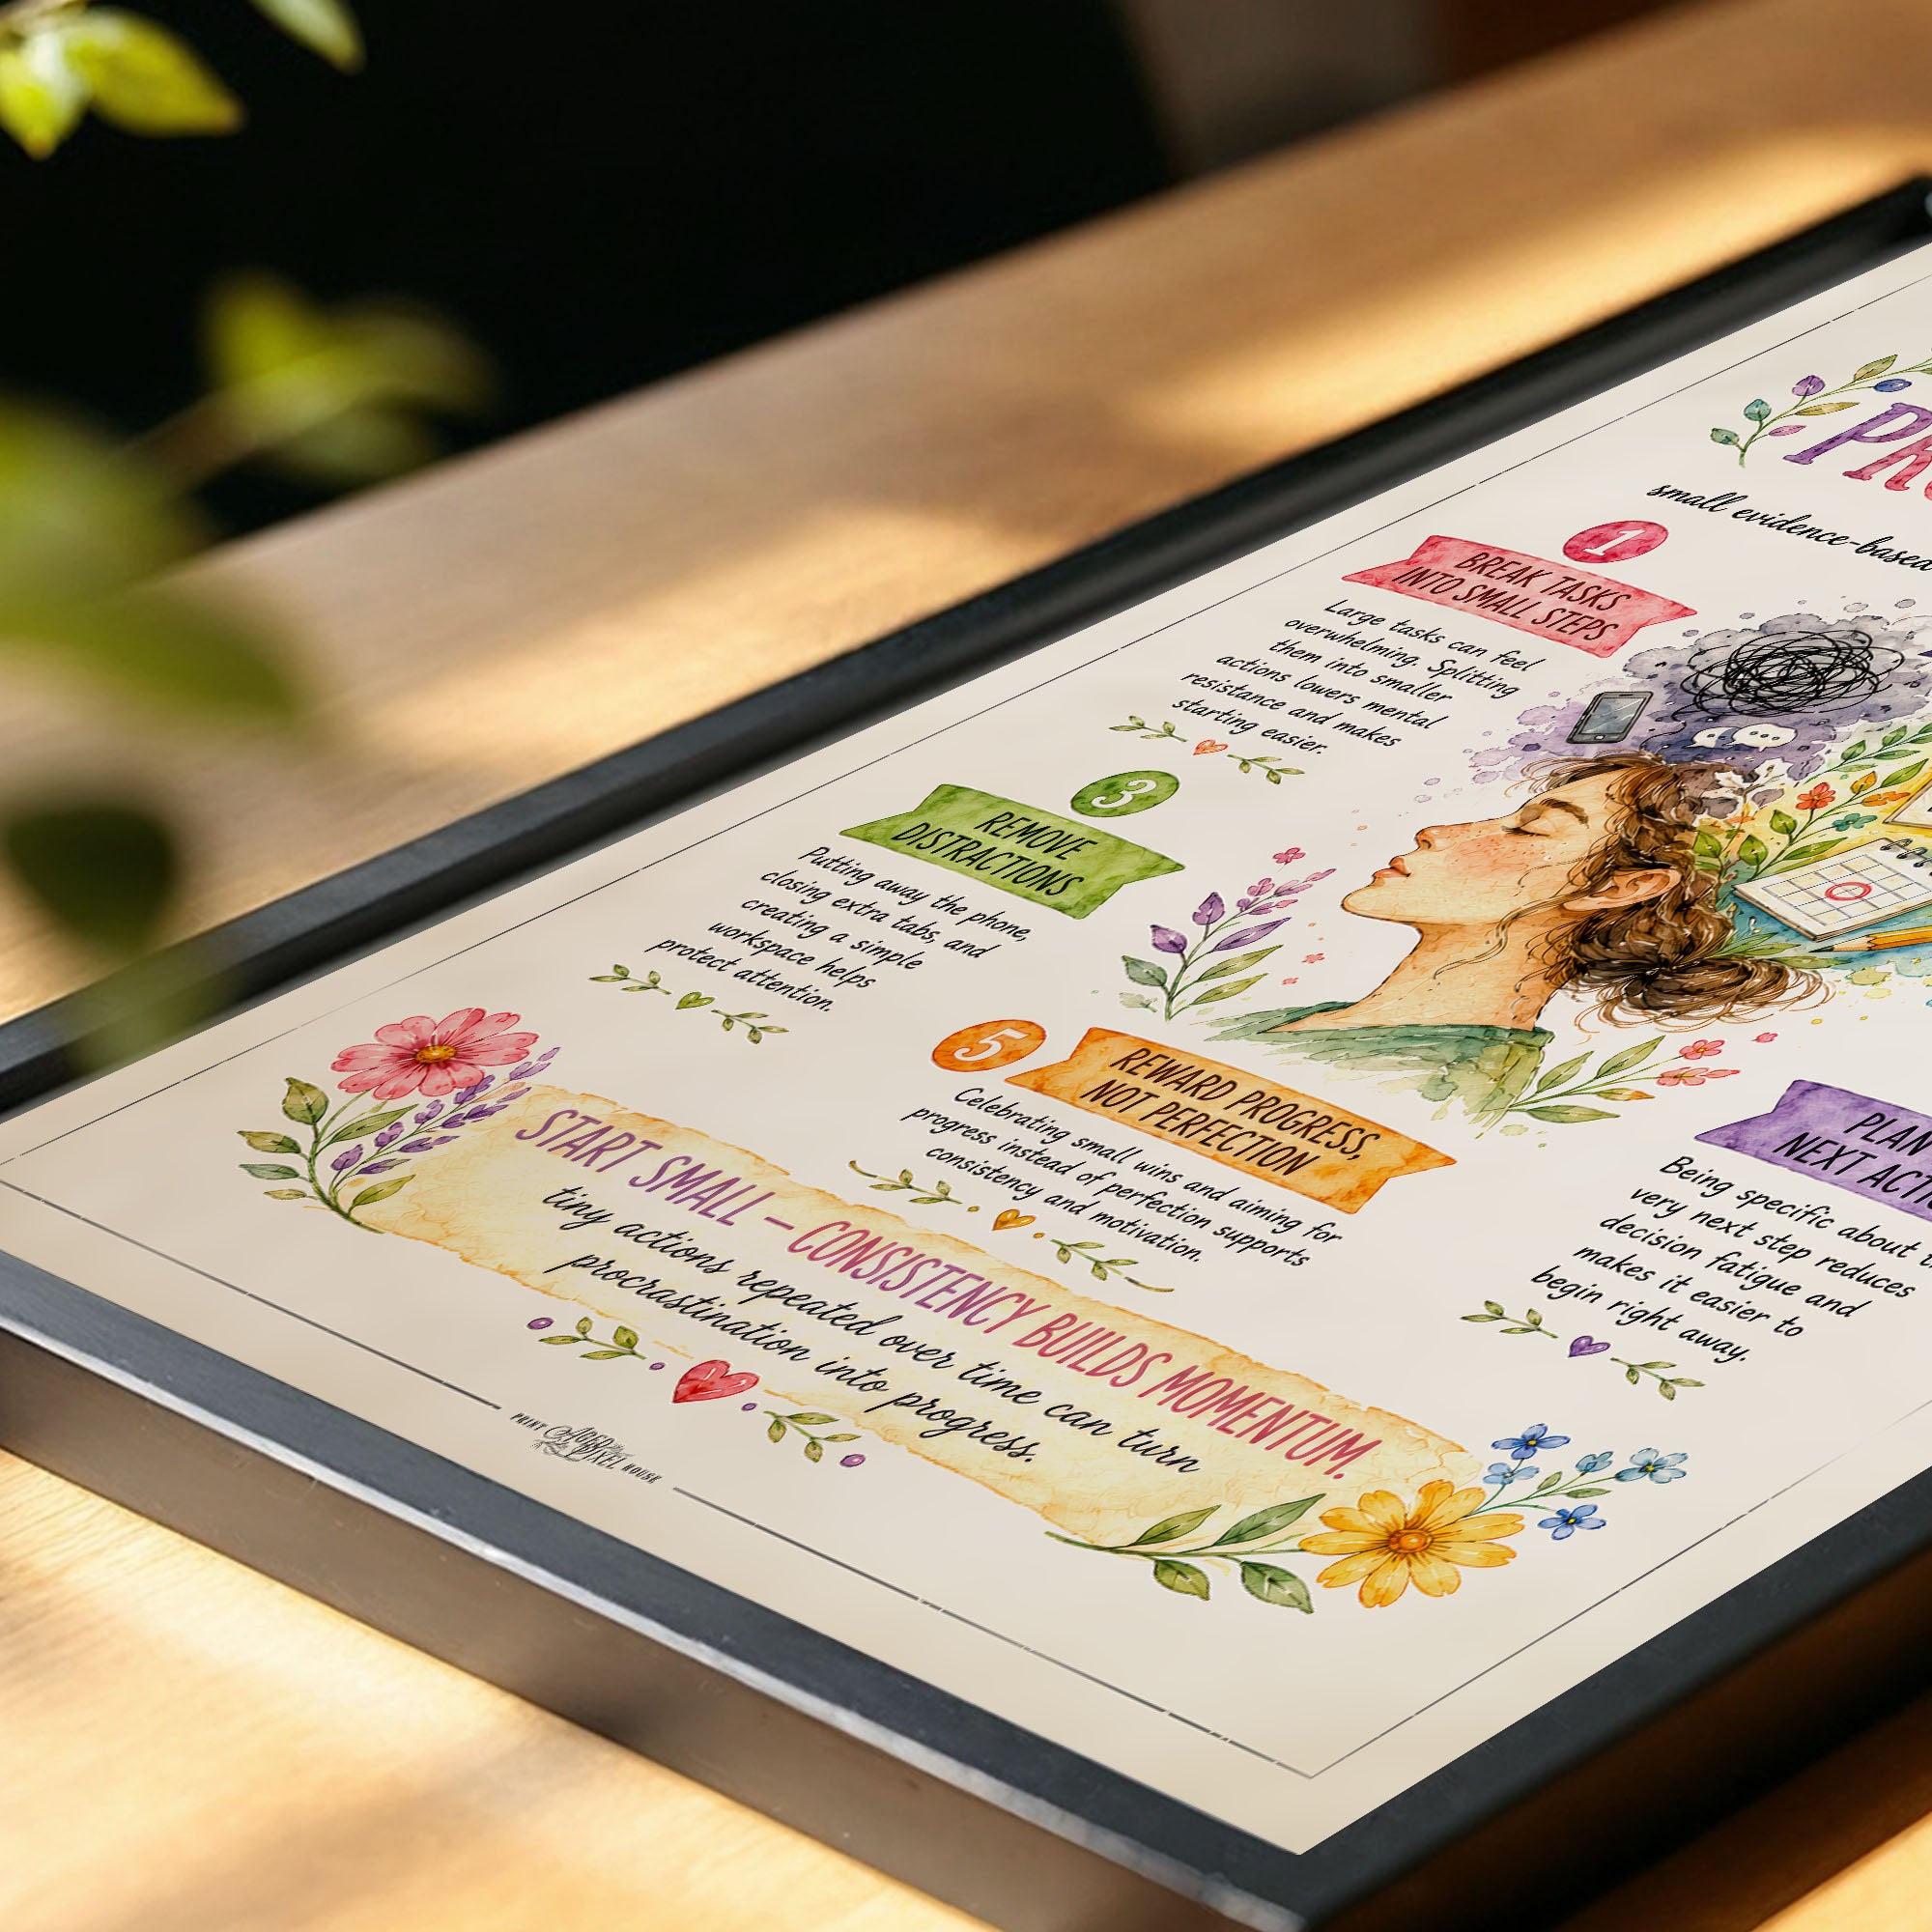 small evidence-based
1
BREAK TASKS
INTO SMALL STEPS
Large tasks can feel
overwhelming. Splitting
them into smaller
actions lowers mental
resistance and makes
starting easier.
3
REMOVE
DISTRACTIONS
Putting away the phone,
closing extra tabs, and
creating a simple
workspace helps
protect attention.
PLAN
NEXT
Being specific about
very next step reduces
decision fatigue and
makes it easier to
begin right away.
5
REWARD PROGRESS,
NOT PERFECTION
Celebrating small wins and aiming for
progress instead of perfection supports
consistency and motivation.
START SMALL – CONSISTENCY BUILDS MOMENTUM.
tiny actions repeated over time can turn
procrastination into progress.
PRINT AGED PIXEL HOUSE